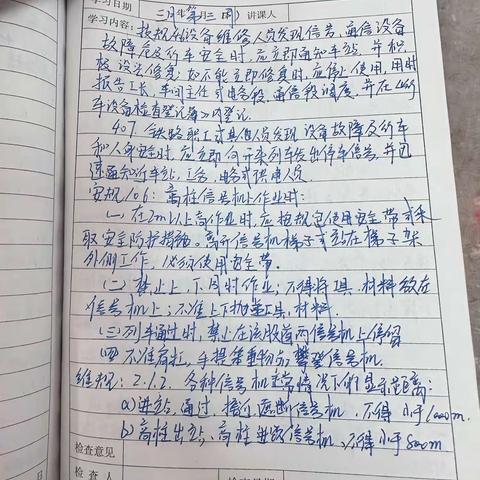 学习日期 三月第三周 讲课人
学习内容: 技规 设备维修人员发现信号、通信设备
故障危及行车安全时,应立即通知车站,并积
极设法修复;如不能立即修复时,应停止使用,同时
报告工长、车间主任或电务段、通信段调度,并在《行
车设备检查登记簿》内登记。
407. 铁路职工或其他人员发现设备故障危及行车
和人身安全时,应立即向开来列车发出停车信号,并迅
速通知就近车站、工务、电务或供电人员
安规106: 高柱信号机上作业时:
(一)在2m以上高作业时,应按规定使用安全带或采
取安全防护措施。离开信号机梯子或站在梯子架
外侧工作,必须使用安全带。
(二)禁止上、下同时作业;不得将工具、材料放在
信号机上;不准上下抛递工具、材料。
(三)列车通过时,禁止在该股道两信号机上停留
(四)不准肩扛、手提笨重物品攀登信号机。
维规: 2.1.2. 各种信号机正常情况下的显示距离:
a)进站、通过、接近、遮断信号机,不得小于1000m.
b)高柱出站,高柱进路信号机,不得小于800m.
检查意见
检查人 检查日期